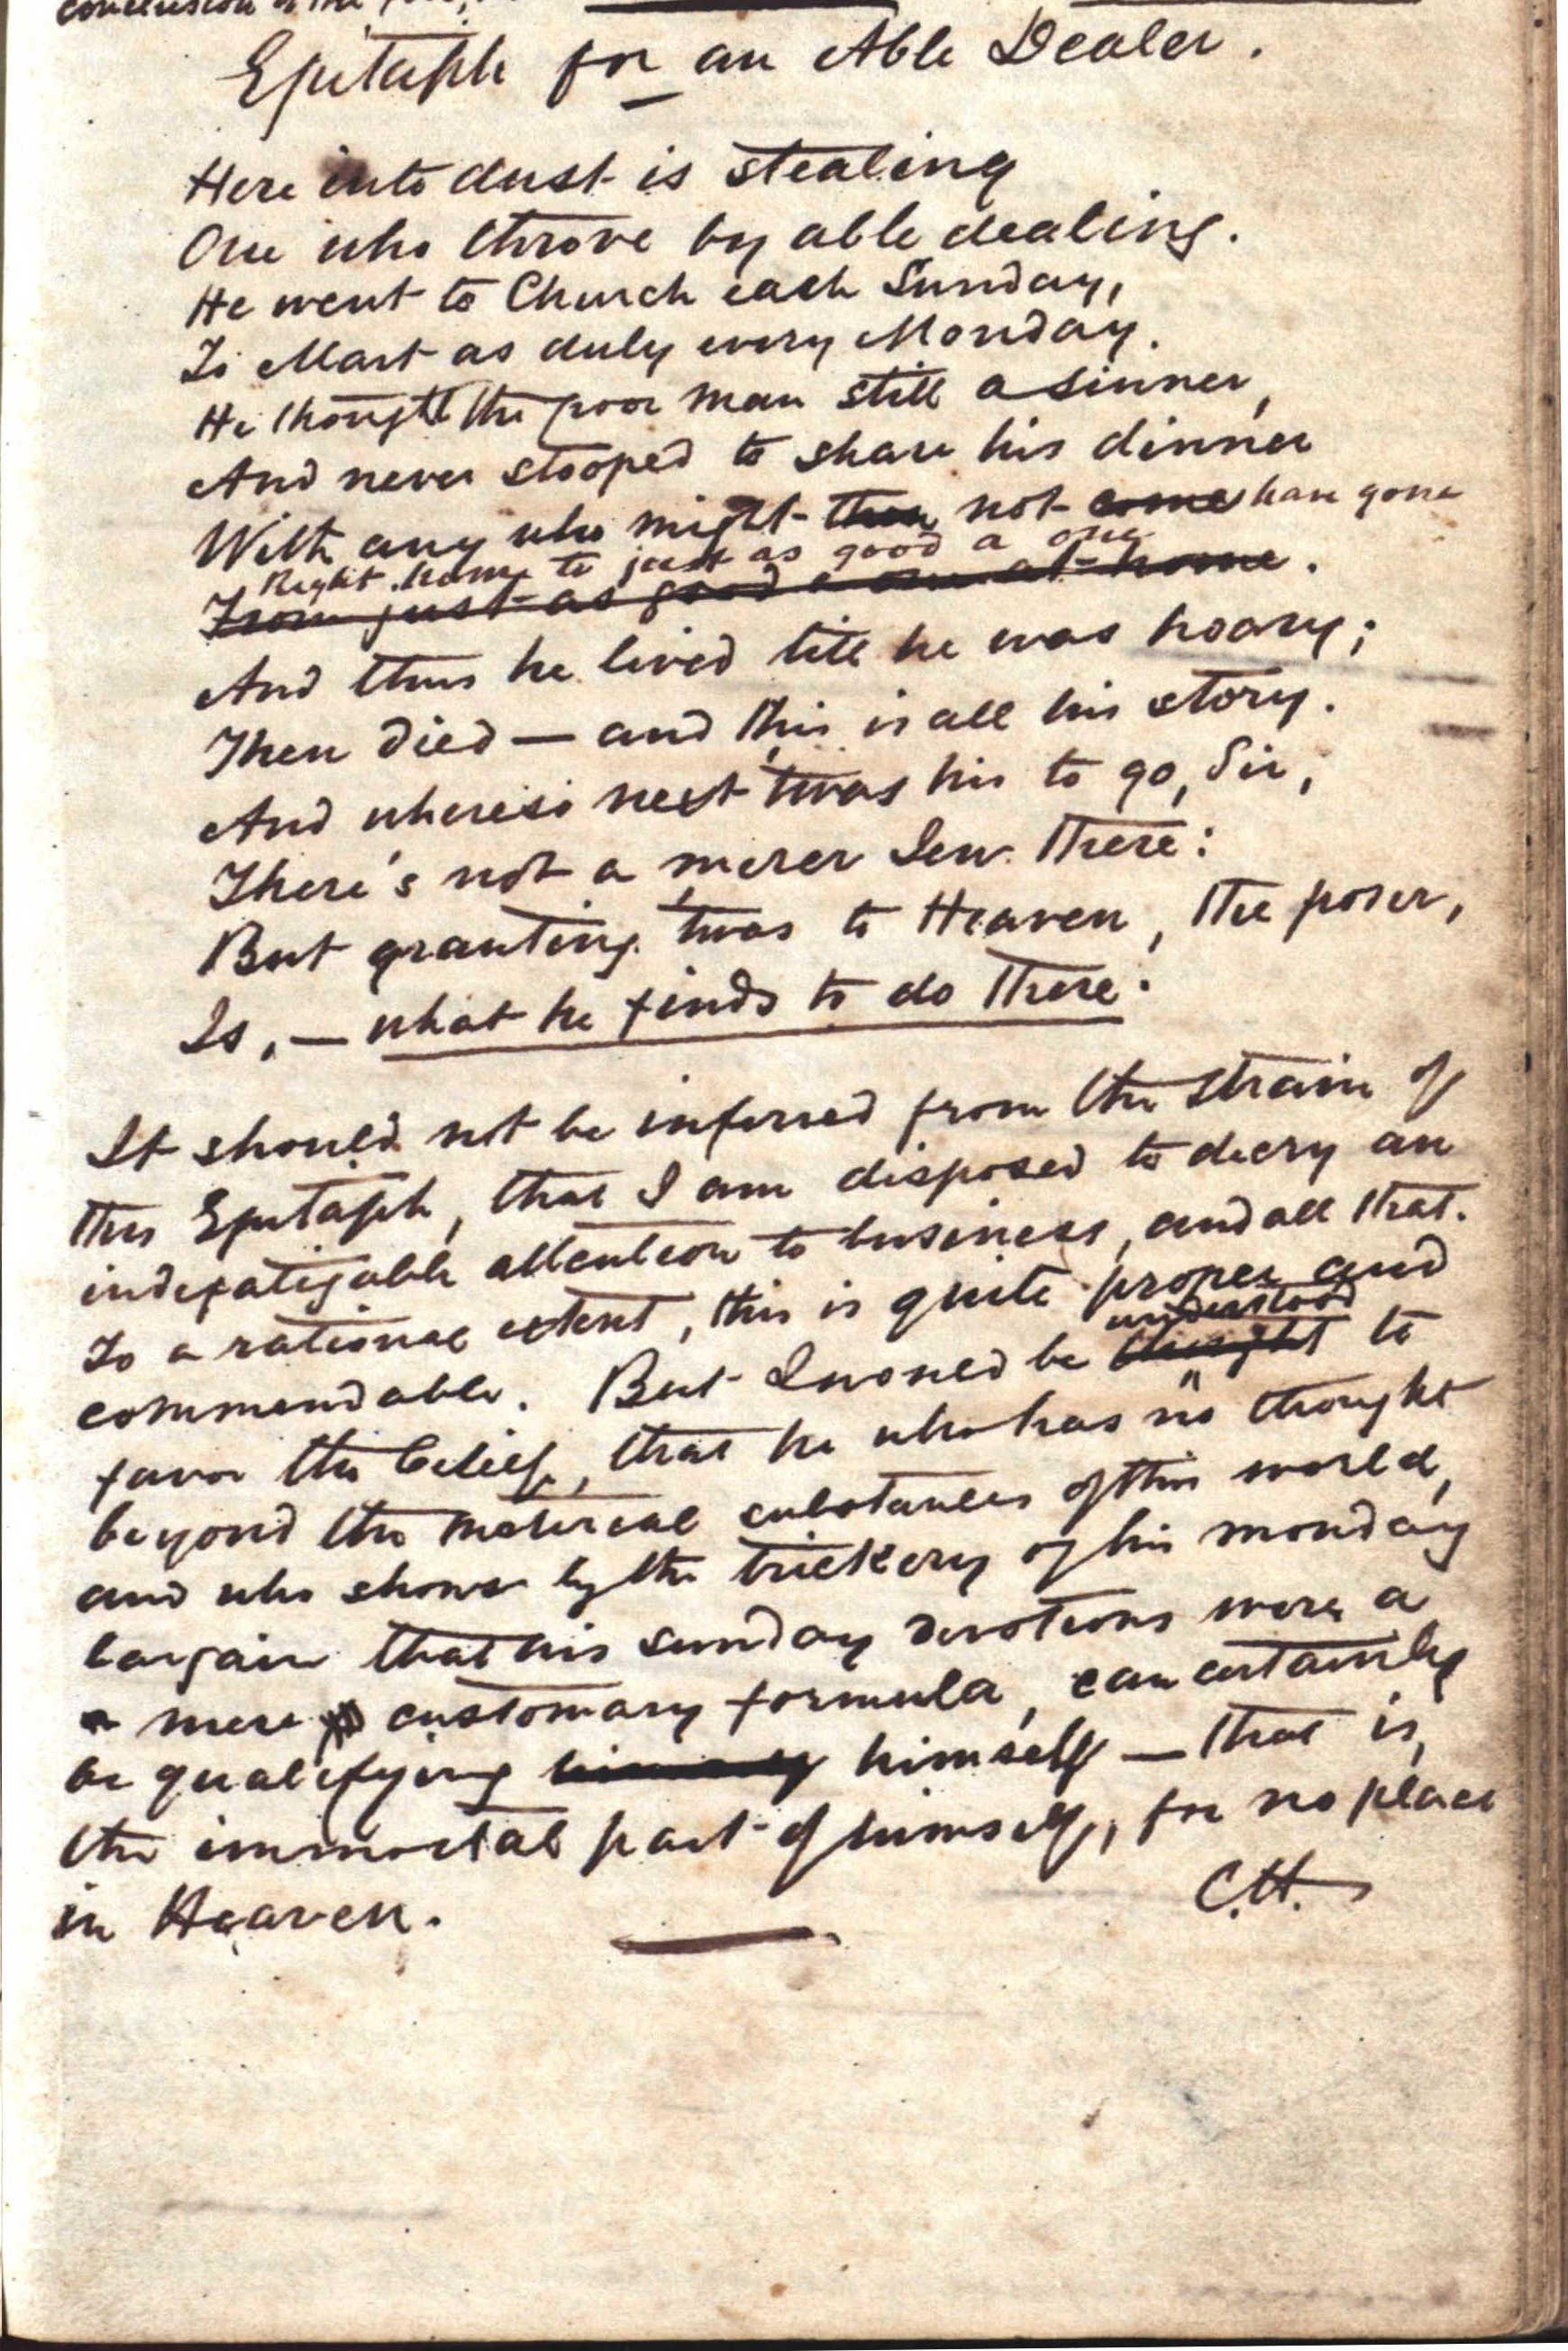 conclusion of the
Epitaph for an Able Dealer.
Here into dust is stealing
One who throve by able dealing.
He went to Church each Sunday,
To Mart as duly every Monday.
He thought the poor man still a sinner,
And never stooped to share his dinner
With any who might then not come have gone
Right home to just as good a one
From just as good a one at home.
And thus he lived till he was hoary;
Then died — and this is all his story.
And whereso next 'twas his to go, Sir,
There's not a merer Jew there:
But granting 'twas to Heaven, the poser,
Is, — what he finds to do there.
It should not be inferred from the strain of
this Epitaph, that I am disposed to decry an
indefatigable attention to business, and all that.
To a rational extent, this is quite proper and
understood
commendable. But I would be thought to
favor the belief, that he who has no thought
beyond the material substances of this world,
and who shows by the trickery of his monday
bargain that his sunday devotions were a
a mere customary formula, can certainly
be qualifying himself — that is,
the immortal part of himself, for no place
in Heaven.
C.H.